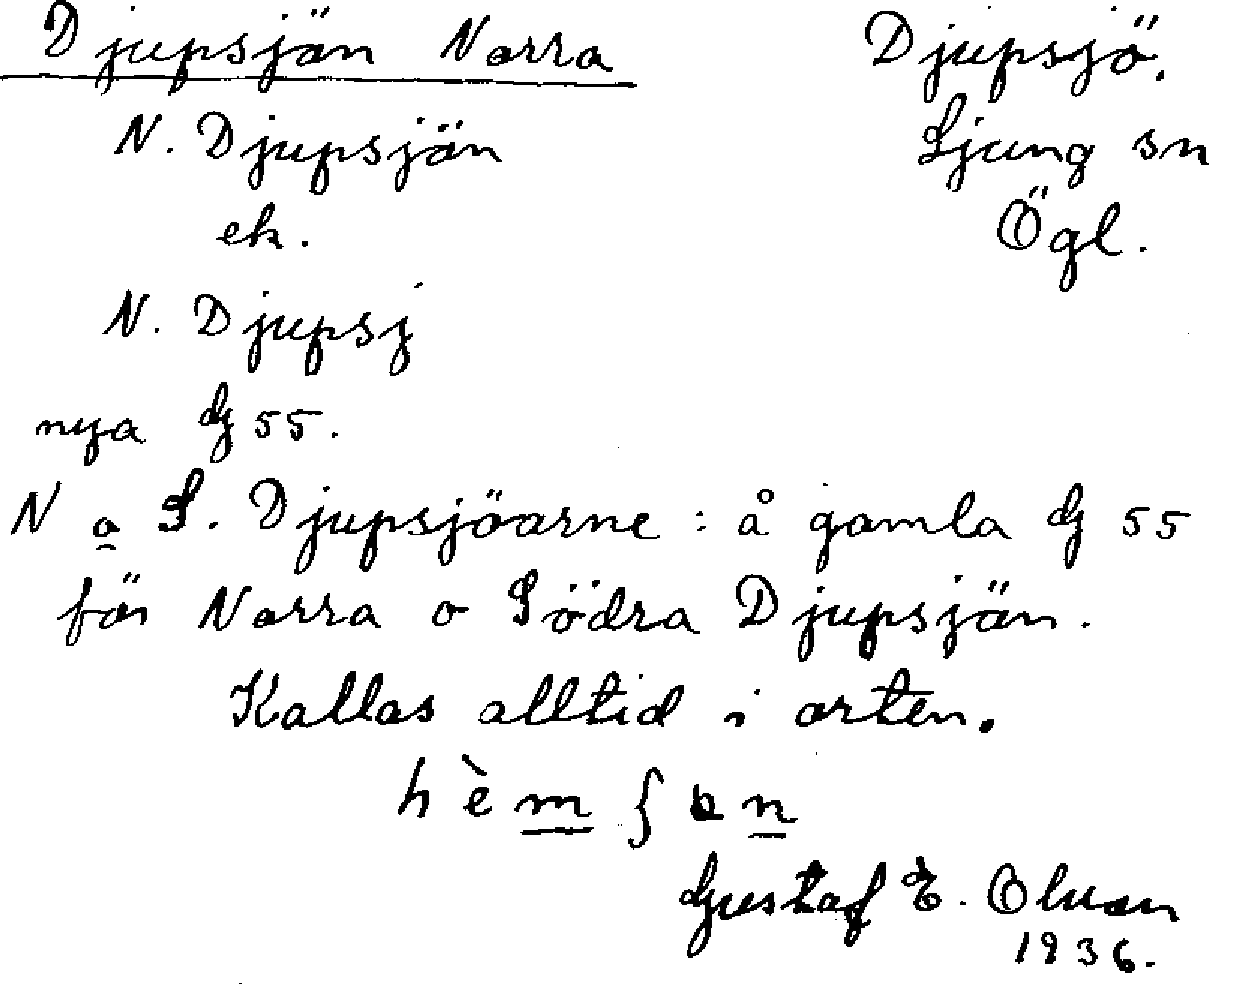 Djupsjön Norra
Djupsjö.
N. Djupsjön
Ljung sn
ek.
Ögl.
N. Djupsj
nya G 55.
N o S. Djupsjöarne : å gamla G 55
för Norra o Södra Djupsjön.
Kallas alltid i orten.
hèm
Gustaf E.
1936.